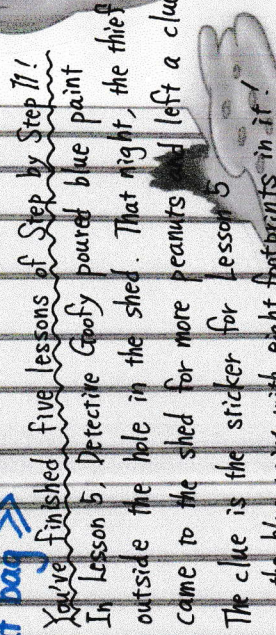 bag >>
You've finished five lessons of Step by Step II!
In Lesson 5, Detective Goofy poured blue paint
outside the hole in the shed. That night, the thief
came to the shed for more peanuts and left a clue
The clue is the sticker for Lesson 5
footprints in it!